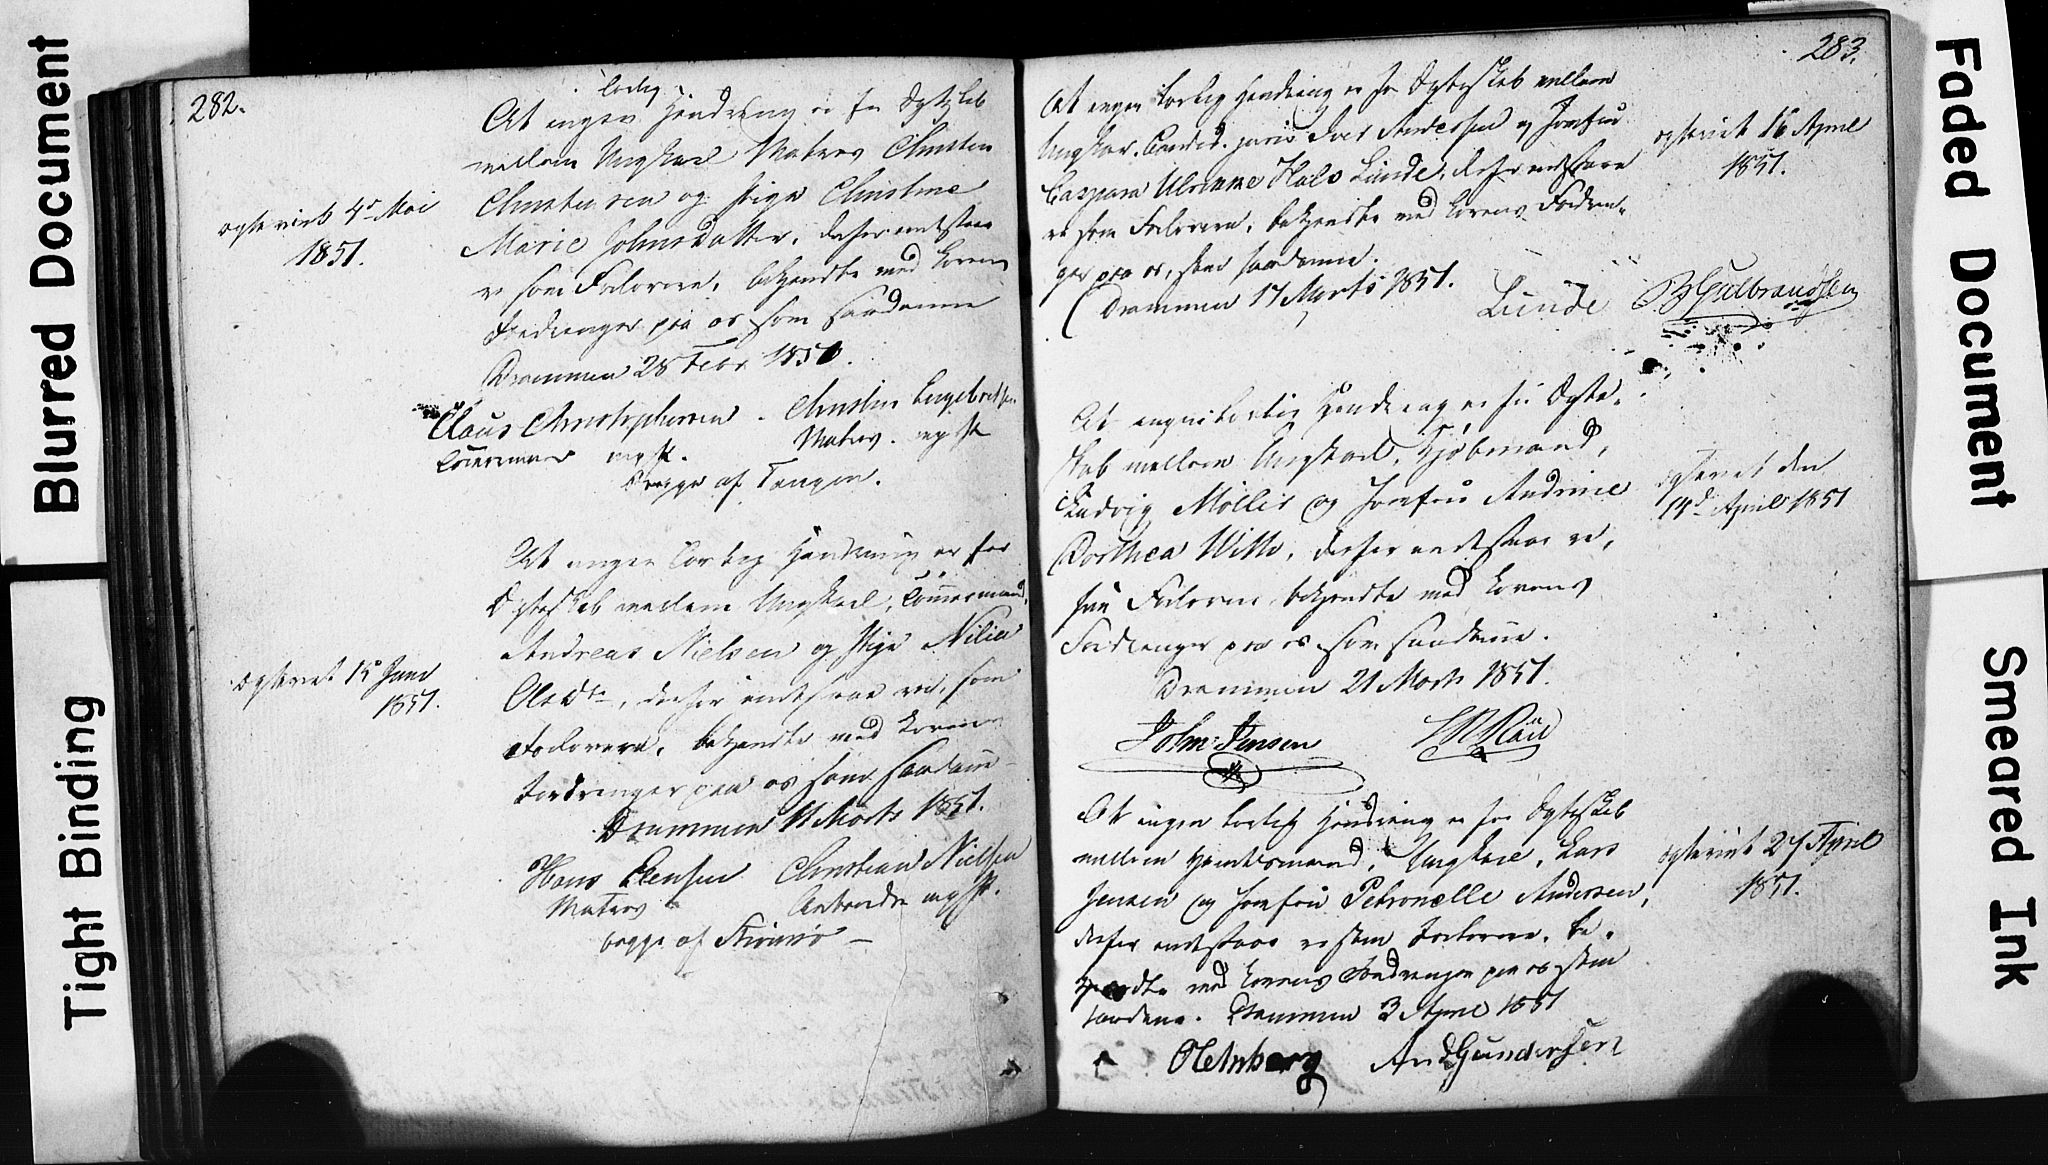 Blurred Document
Tight Binding
282.
lovlig
At ingen Hindring er for Ægteskab
mellem Ungkarl Matros Christen
Christensen og Pige Christine
Marie Johnsdatter, derfor indestaae
vi som Forlovere, bekjendte med Lovens
Fordringer paa os som saadanne
Drammen 28 Febr 1851.
Claus Christophersen - Christen Engebretsen
Tømmermand m p P. Matros. m p P
begge af Tangen.
ægteviet 4de Mai
1851.
At ingen lovlig Hindring er for
Ægteskab mellem Ungkarl, Tømmermand,
Andreas Nielsen og Pige Nilia
Olsdtr, derfor indestaae vi, som
Forlovere, bekjendte med Lovens
Fordringer paa os som saadanne
Drammen 11 Marts 1851.
Hans Christian Nielsen
Matros m p P.
begge af Strømsø
ægteviet 15 Juni
1851.
283.
At ingen lovlig Hindring er for Ægteskab mellem
Ungkar. Candid. juris Iver Andersen og Jomfru
Caspara Ulrikke Hals Lunde, derfor indestaae
vi som Forlovere, bekjendte med Lovens Fordrin-
ger paa os, som saadanne.
Drammen 17 Marts 1851.
Lunde Gulbrandsen
ægteviet 16 April
1851.
At ingen lovlig Hindring er for Ægte-
skab mellem Ungkarl, Kjøbmand,
Ludvig Møller og Jomfru Andrine
Dorthea Witth, derfor indestaae vi,
som Forlovere bekjendte med Lovens
Fordringer paa os som saadanne.
Drammen 21 Marts 1851.
John: Jensen
ægteviet den
14de April 1851
At ingen lovlig Hindring er for Ægteskab
mellem Handelsmand, Ungkarl, Lars
Jensen og Jomfru Petronelle Andersen,
derfor indestaae vi som Forlovere, be-
kjendte med Lovens Fordringer paa os som
saadanne. Drammen 3 April 1851
And Gundersen
ægteviet 27 April
1851.
Faded Document
Smeared Ink